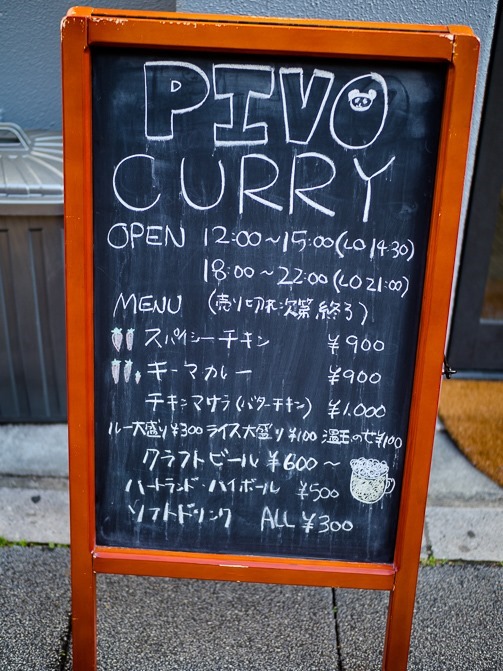 PIVO
CURRY
OPEN 12:00～15:00(LO 14:30)
18:00～22:00(LO21:00)
MENU (売り切れ次第終了)
スパイシーチキン ¥900
キーマカレー ¥900
チキンマサラ(バターチキン) ¥1,000
ルー大盛り¥300 ライス大盛り¥100 温玉のせ¥100
クラフトビール ¥600～
ハートランド・ハイボール ¥500
ソフトドリンク ALL ¥300